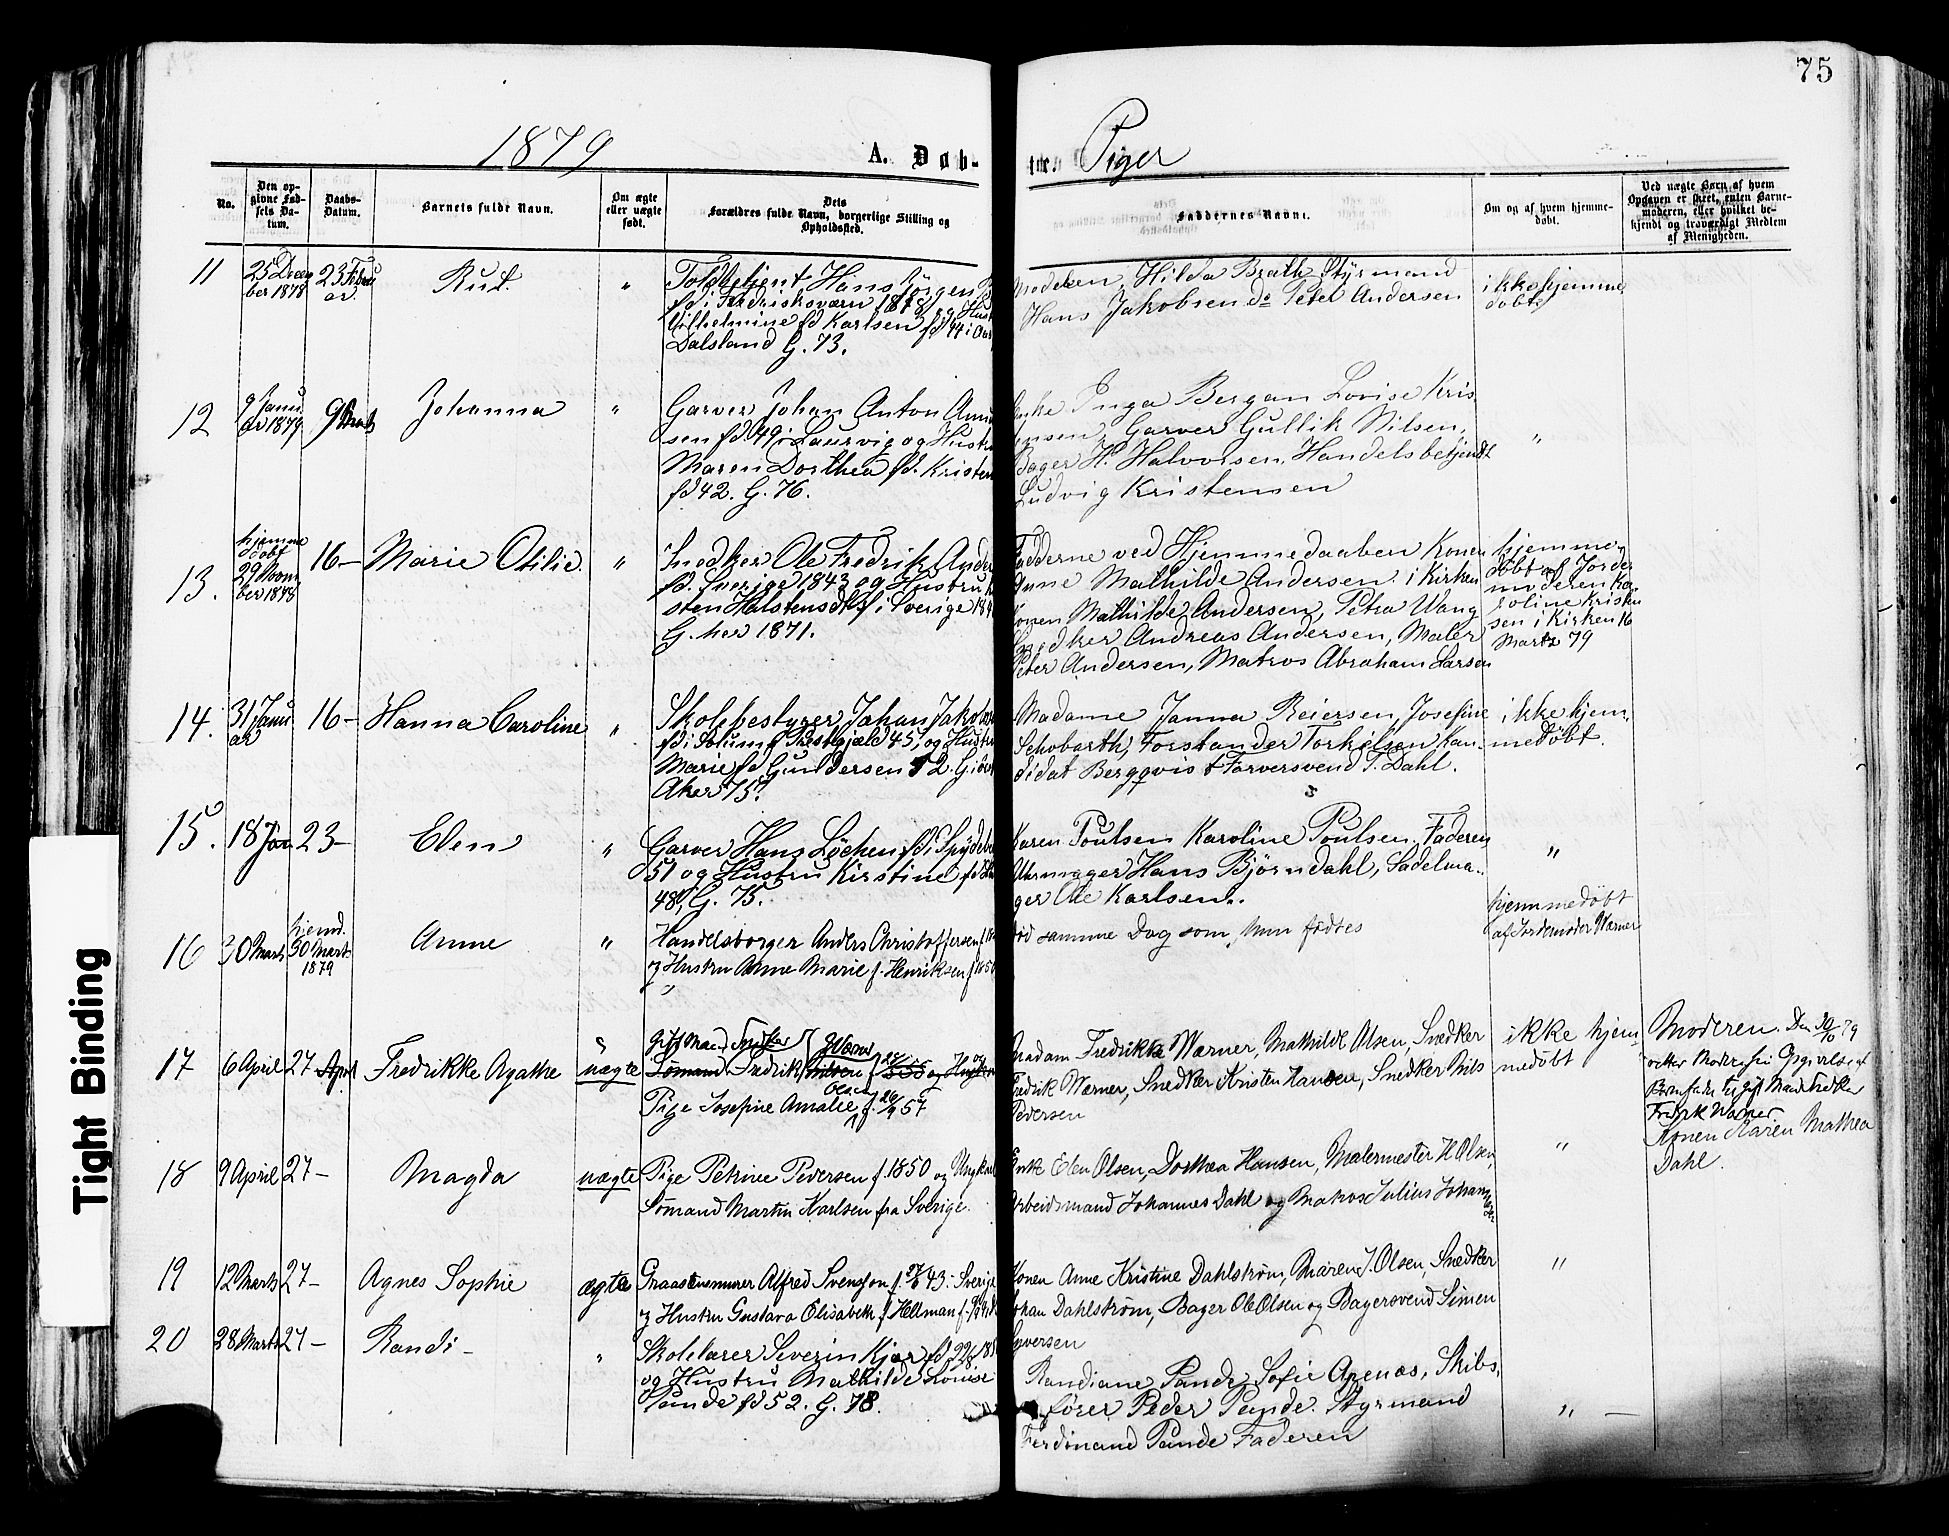 75
1879 A. Døb- te. Piger
No.
Den op-
givne Fød-
sels Da-
tum.
Daabs-
Datum.
Barnets fulde Navn.
Om ægte
eller uægte
født.
Dets
Forældres fulde Navn, borgerlige Stilling og
Opholdssted.
Faddernes Navne.
Om og af hvem hjemme-
døbt.
Ved uægte Børn af hvem
Opgaven er skeet, enten Barne-
moderen, eller hvilket be-
kjendt og troværdigt Medlem
af Menigheden.
11
25 Decem
ber 1878
23 Febru
ar.
Rut.
"
Toldbetjent Hans Jörgen
fd i Fredriksværn
Vilhelmine fd Karlsen
Dalsland G. 73.
Moderen, Hilda Brath Styrmand
Hans Jakobsen do Peter Andersen
ikke hjemme
døbt
12
9 Janu
ar 1879
9 Marts
Johanna
"
Garver Johan Anton Amu
sen fd 49 i Laurvig og Hustru
Maren Dorthea fd. Kristen
fd 42. G. 76.
Enke Inga Bergan Lovise Kris
Garver Gullik Nilsen,
Bager H. Halvorsen, Handelsbetjent
Ludvig Kristensen
"
13.
hjemme
døbt
29 Novem
ber 1878
16 –
Marie Otilie.
"
Snedker Ole Fredrik Ander
fd. Sverige 1843 og Hustru
sten Halstensdtr fd i Sverige 184
G. her 1871.
Fadderne ved Hjemmedaaben Konen
Anne Mathilde Andersen. i Kirken
Konen Mathilde Andersen, Petra Wang
Snedker Andreas Andersen, Maler
Peter Andersen, Matros Abraham Larsen
hjemme
døbt af Jorde
moderen Ka
roline Kristen
sen i Kirken 16
Marts 79
14.
31 Janu
ar
16 –
Hanna Caroline
"
Skolebestyrer Johan Jakobsen
fd i Solum Prestegjæld 45, og Hustru
Marie fd Gundersen 52. G. i
Aker 75.
Madame Janna Reiersen, Josefine
Schobarth, Forstander Torkelsen Kan-
didat Bergqvist Farversvend T. Dahl.
ikke hjem-
medøbt.
15.
18 Jan
23 –
Elen
"
Garver Hans Löchen fd i Spydeb
51 og Hustru Kirstine fd
48, G. 75.
Karen Poulsen Karoline Poulsen, Faderen
Uhrmager Hans Bjørndahl, Sadelma-
ger Ole Karlsen.
"
16
30 Marts
hjemd.
30 Marts
1879
Anne
"
Handelsborger Anders Christoffersen f.
og Hustru Anne Marie f. Henriksen f 1850
"
død samme Dag som hun fødtes
hjemmedøbt
af Jordemoder Werner
17
6 April
27 April
Fredrikke Agathe
uægte
gift Mand Snedker
Sømand Fredrik Nilsen Werner f 55 og
Pige Josefine Amalie Olsen f. 26/9 57
Madam Fredrikke Werner, Mathilde Olsen, Snedker
Fredrik Werner, Snedker Kristen Hansen, Snedker Nils
Pedersen
ikke hjem-
medøbt
Moderen. Den 30/10 79
retter Moder sin Opgivelse af
Barnefader til gift Mand Snedker
Fredrik Werner.
18
9 April
27 –
Magda
uægte
Pige Petrine Pedersen f. 1850 og Ungkarl
Sømand Martin Karlsen fra Sverige.
Enke Elen Olsen, Dorthea Hansen, Malermester H Olsen,
Arbeidsmand Johannes Dahl og Matros Julius Johannesen
"
Konen Karen Mathea
Dahl.
19
12 Marts
27 –
Agnes Sophie
ægte
Graastensmurer Alfred Svensson f. 43. Sverige
og Hustru Gustava Elisabeth f Hellman f.
Konen Anne Kristine Dahlstrøm, Maren J. Olsen, Snedker
Johan Dahlstrøm, Bager Ole Olsen og Bagersvend Simen
Syversen
"
20
28 Marts
27 –
Randi –
"
Skolelærer Severin Kjær fd 22/8 185
og Hustru Mathilde Lovise
Pande fd 52. G. 78.
Randiane Pande, Sofie Arenas, Skibs-
fører Peder Pande. Styrmand
Ferdinand Pande Faderen
" –
Tight Binding